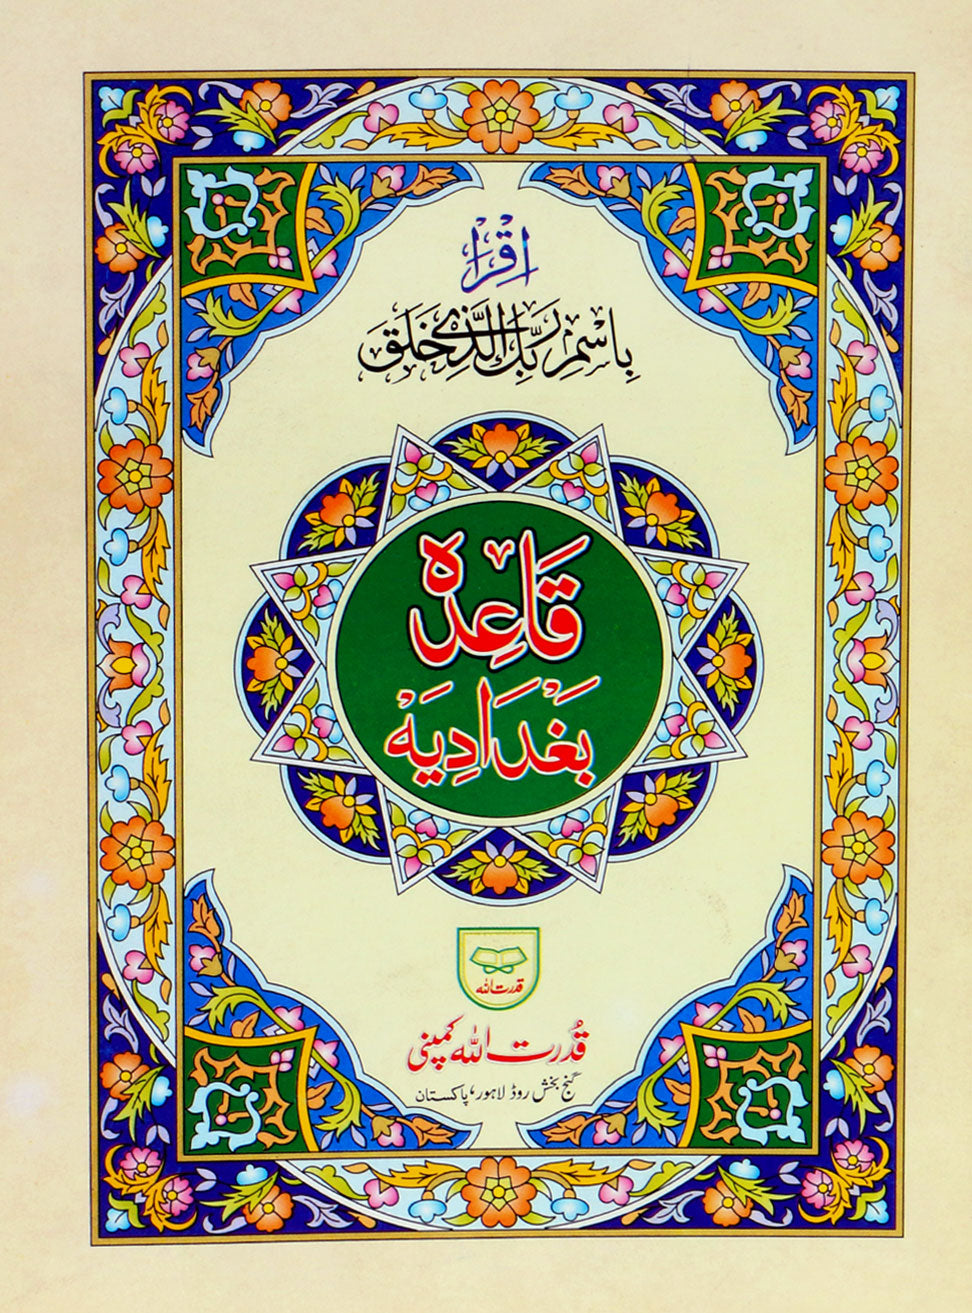 اِقْرَاْ
بِاسْمِ رَبِّكَ الَّذِىْ خَلَقَ
قَاعِدَہ
بَغْدَادِیَہ
قدرت اللہ
قُدرت اللہ کمپنی
گنج بخش روڈ لاہور، پاکستان